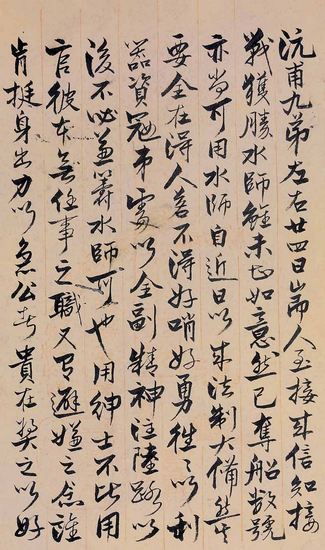 沅甫九弟左右廿四日耑人至接来信知接
戰獲勝水師雖未甚如意然已奪船數號
亦尚可用水師自近日以来法制大備然其
要全在得人若不得好哨好勇往〻以利
器資寇弟處以全副精神注陸路以
後不必兼籌水師可也用紳士不比用
官彼本無任事之職又有避嫌之念誰
肯挺身出力以急公者貴在獎之以好